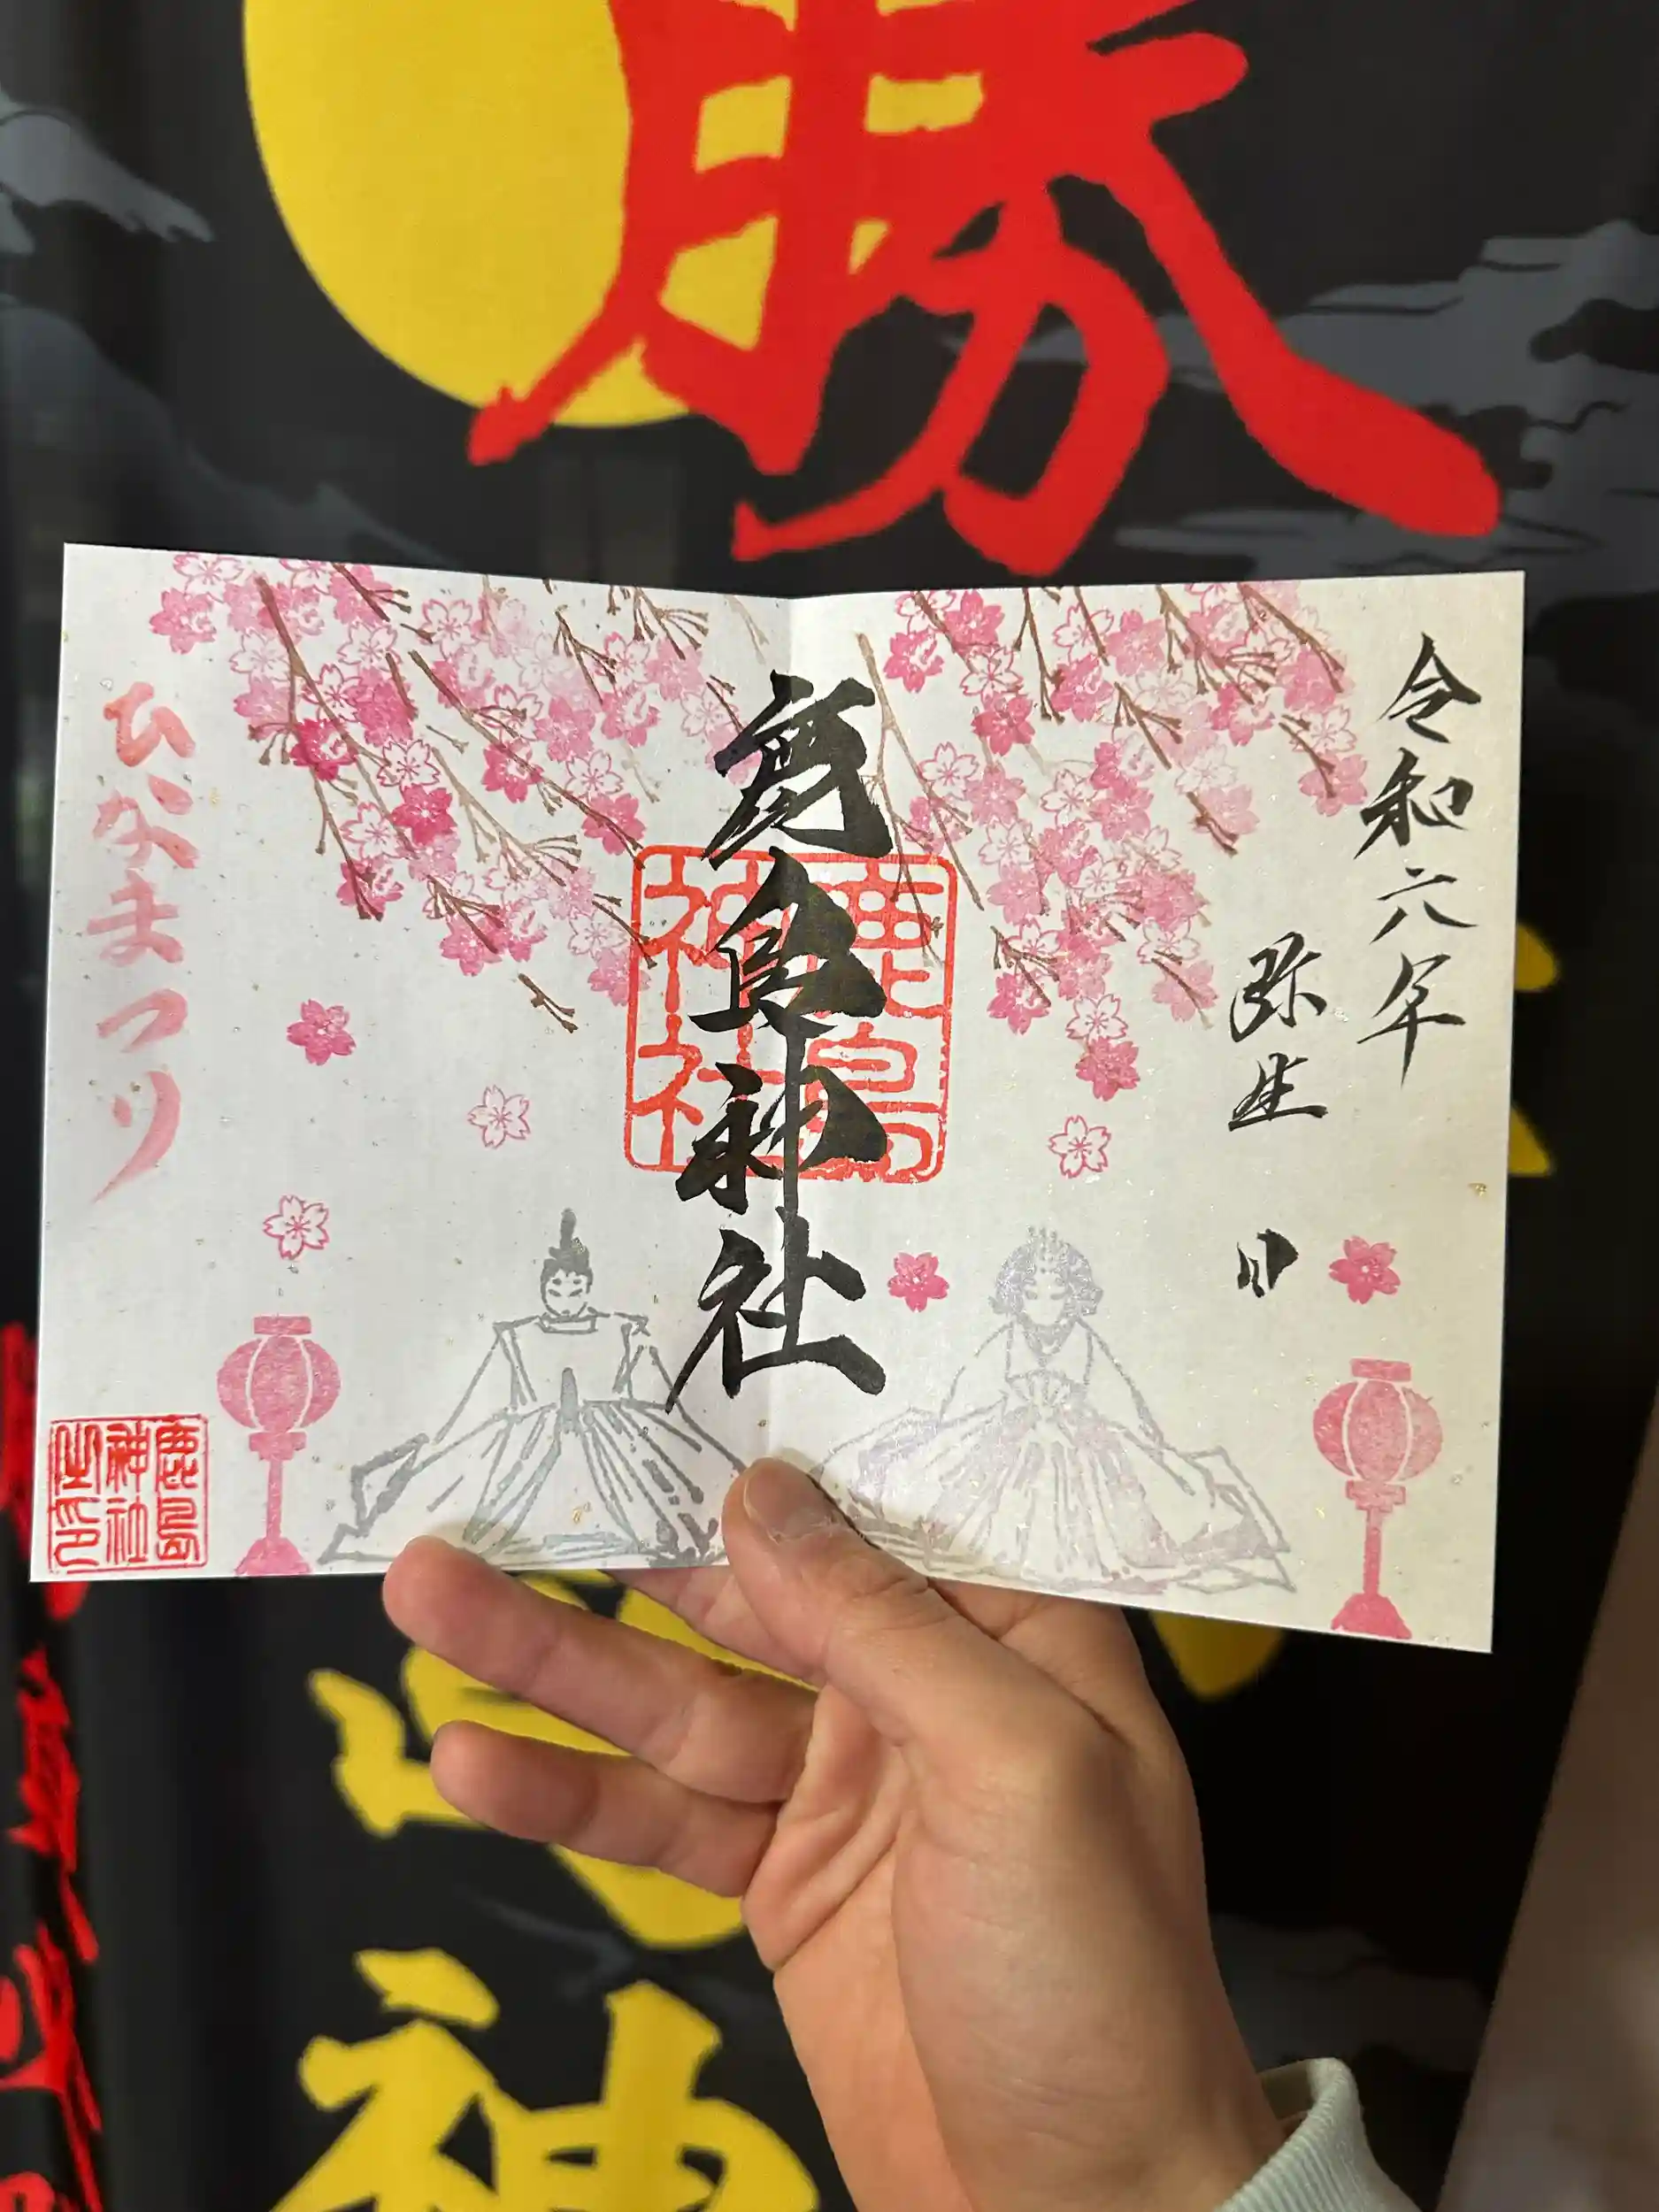 勝
令和六年
弥生 日
鹿島神社
鹿島
神社
ひなまつり
鹿島
神社
之印
神